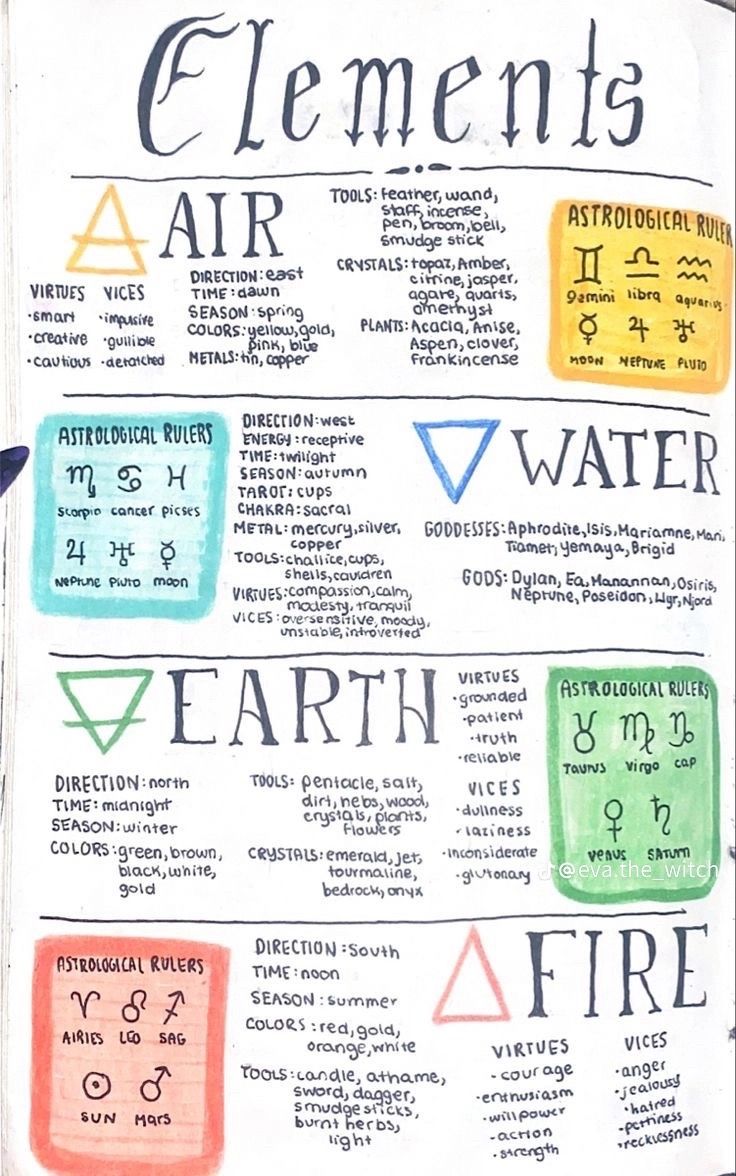 Elements
AIR
VIRTUES
·smart
·creative
·cautious
VICES
·impulsive
·gullible
·detatched
DIRECTION: east
TIME: dawn
SEASON: spring
COLORS: yellow, gold,
pink, blue
METALS: tin, copper
TOOLS: feather, wand,
staff, incense,
pen, broom, bell,
smudge stick
CRYSTALS: topaz, Amber,
citrine, jasper,
agate, quarts,
amethyst
PLANTS: Acacia, Anise,
Aspen, clover,
frankincense
ASTROLOGICAL RULER
♊ ♎ ♒
gemini libra aquarius
☿ ♃ ♅
MOON NEPTUNE PLUTO
ASTROLOGICAL RULERS
♏ ♋ ♓
scorpio cancer picses
♃ ♅ ☿
Neptune Pluto moon
DIRECTION: west
ENERGY: receptive
TIME: twilight
SEASON: autumn
TAROT: cups
CHAKRA: sacral
METAL: mercury, silver,
copper
TOOLS: challice, cups,
shells, cauldren
VIRTUES: compassion, calm,
modesty, tranquil
VICES: oversensitive, moody,
unstable, introverted
WATER
GODDESSES: Aphrodite, Isis, Mariamne, Mari,
Tiamet, Yemaya, Brigid
GODS: Dylan, Ea, Manannan, Osiris,
Neptune, Poseidon, Njord
EARTH
DIRECTION: north
TIME: midnight
SEASON: winter
COLORS: green, brown,
black, white,
gold
TOOLS: pentacle, salt,
dirt, hebs, wood,
crystals, plants,
flowers
CRYSTALS: emerald, jet,
tourmaline,
bedrock, onyx
VIRTUES
·grounded
·patient
·truth
·reliable
VICES
·dullness
·laziness
·inconsiderate
·glutonary
ASTROLOGICAL RULERS
♉ ♍ ♑
Taurus Virgo cap
♀ ♄
venus saturn
@eva.the_witch
ASTROLOGICAL RULERS
♈ ♌ ♐
AIRIES LEO SAG
☉ ♂
SUN Mars
DIRECTION: South
TIME: noon
SEASON: summer
COLORS: red, gold,
orange, white
TOOLS: candle, athame,
sword, dagger,
smudge sticks,
burnt herbs,
light
FIRE
VIRTUES
·courage
·enthusiasm
·willpower
·action
·strength
VICES
·anger
·jealousy
·hatred
·pettiness
·recklessness